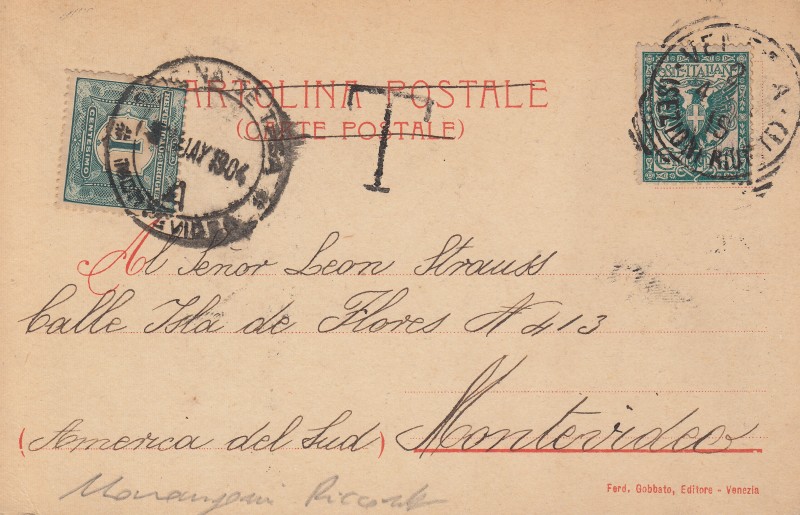 CARTOLINA POSTALE
(CARTE POSTALE)
T
POSTE ITALIANE
VENEZIA
1
CENTESIMO
MAY 1904
Al Señor Leon Strauss
Calle Isla de Flores N 413
(America del Sud) Montevideo
Ferd. Gobbato, Editore - Venezia